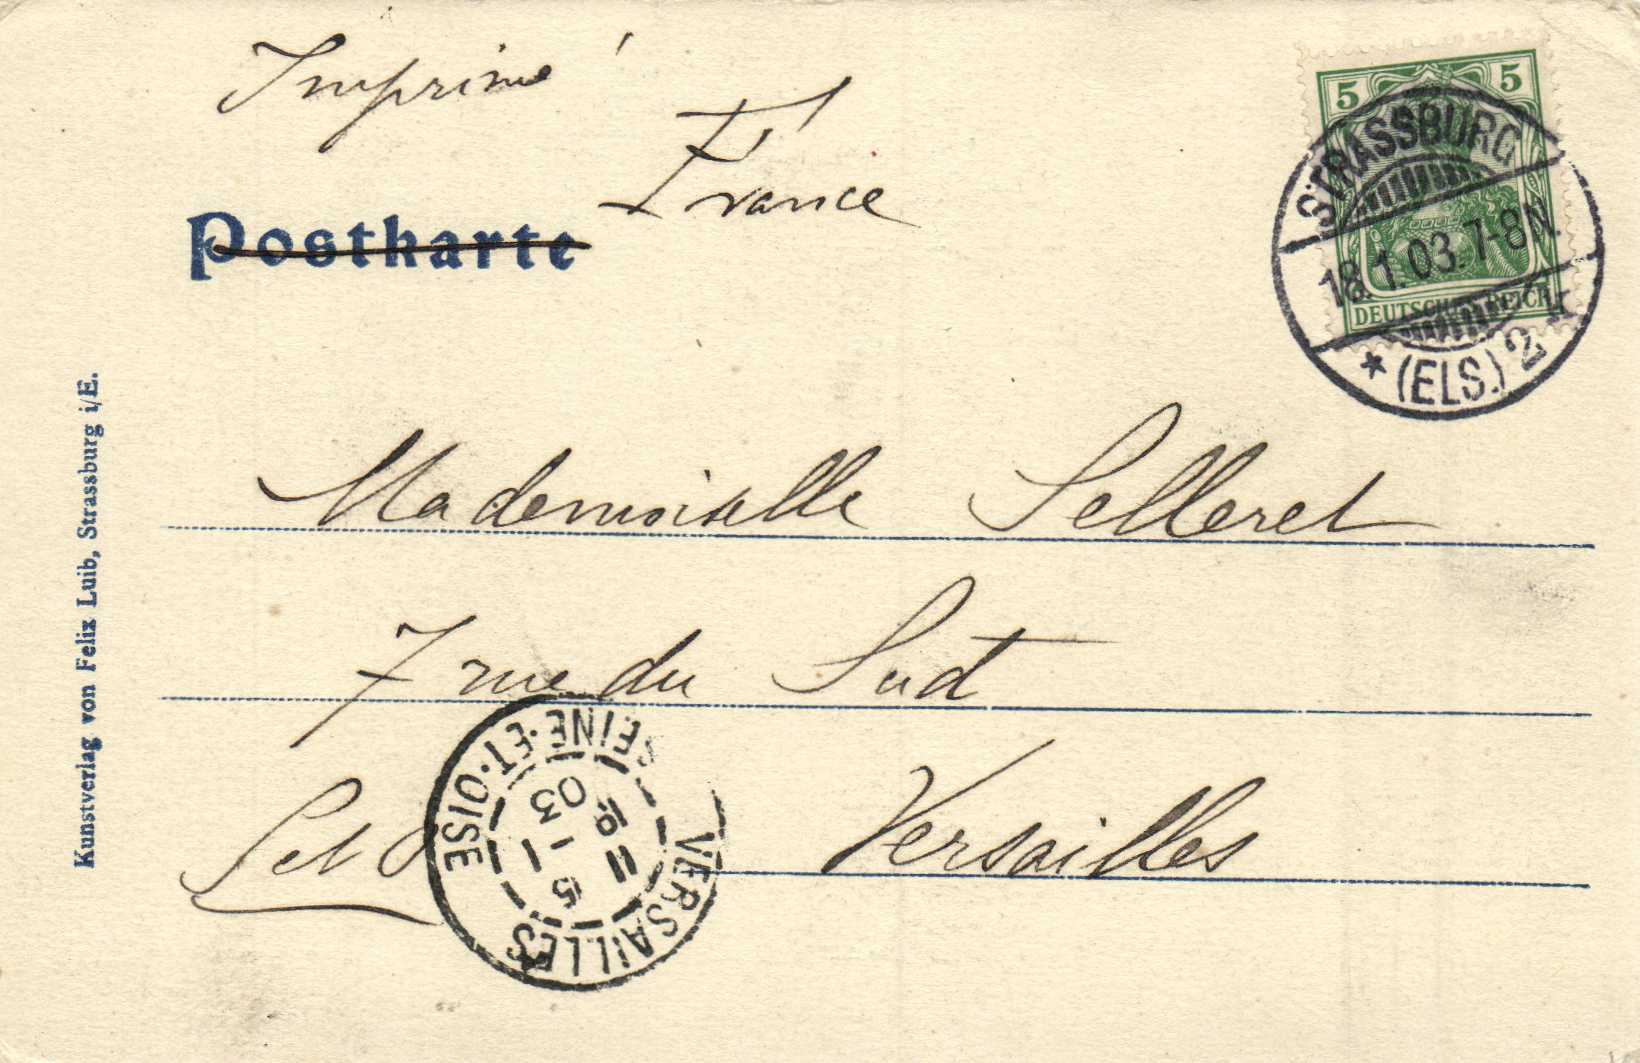 Imprimé
France
Postkarte
5 5
DEUTSCHES REICH
STRASSBURG
18.1.03.7-8N.
* (ELS.) 2
Mademoiselle Selleret
7 rue du Sud
Set O Versailles
VERSAILLES
SEINE-ET-OISE
03
Kunstverlag von Felix Luib, Strassburg i/E.